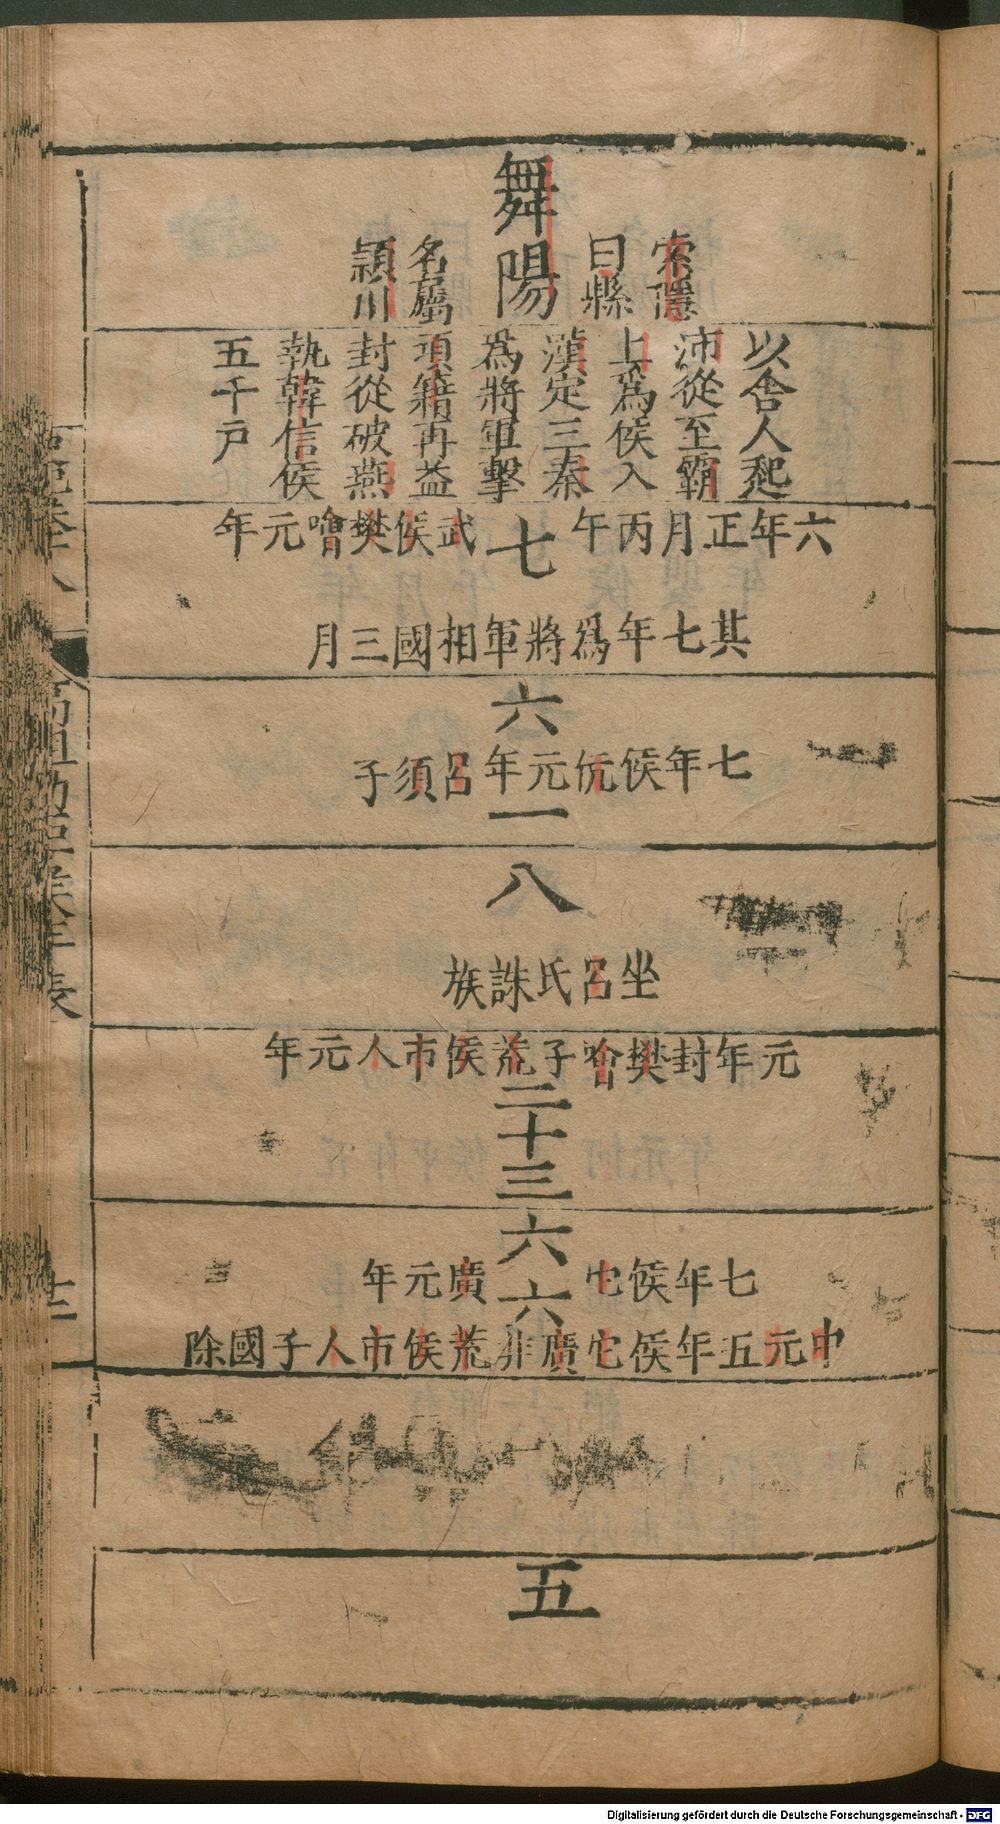 舞陽
索隱
曰縣
名屬
潁川
以舍人起
沛從至霸
上爲侯入
漢定三秦
爲將軍擊
項籍再益
封從破燕
執韓信侯
五千戶
六年正月丙午武侯樊噲元年
七
其七年爲將軍相國三月
六
七年侯伉元年呂須子
一
八
坐呂氏誅族
元年封樊噲子荒侯市人元年
二十三
六
七年侯它廣元年
六
中元五年侯它廣非荒侯市人子國除
五
高祖功臣侯年表
Digitalisierung gefördert durch die Deutsche Forschungsgemeinschaft - DFG